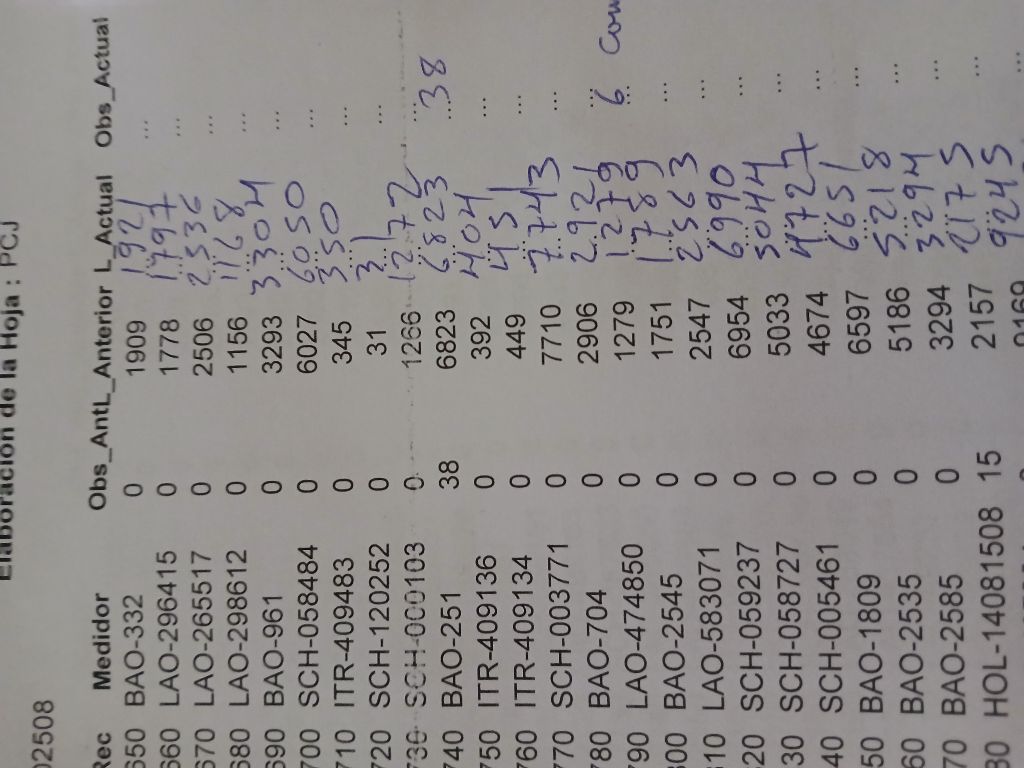 Elaboración de la Hoja : PCJ
02508
Rec Medidor Obs_Ant L_Anterior L_Actual Obs_Actual
650 BAO-332 0 1909 1921 ...
660 LAO-296415 0 1778 1797 ...
670 LAO-265517 0 2506 2536 ...
680 LAO-298612 0 1156 1168 ...
690 BAO-961 0 3293 3304 ...
700 SCH-058484 0 6027 6050 ...
710 ITR-409483 0 345 350 ...
720 SCH-120252 0 31 31 ...
730 SCH-000103 0 1266 1272 ...
740 BAO-251 38 6823 6823 ... 38
750 ITR-409136 0 392 404 ...
760 ITR-409134 0 449 451 ...
770 SCH-003771 0 7710 7743 ...
780 BAO-704 0 2906 2921 ...
790 LAO-474850 0 1279 1279 ... 6
800 BAO-2545 0 1751 1789 ...
810 LAO-583071 0 2547 2563 ...
820 SCH-059237 0 6954 6990 ...
830 SCH-058727 0 5033 5044 ...
840 SCH-005461 0 4674 4727 ...
850 BAO-1809 0 6597 6651 ...
860 BAO-2535 0 5186 5218 ...
870 BAO-2585 0 3294 3294 ...
880 HOL-14081508 15 2157 2175 ...
9169 9245 ...